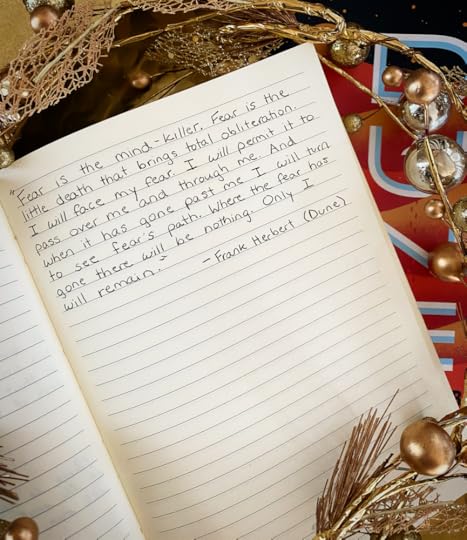 "Fear is the mind-killer. Fear is the
little death that brings total obliteration.
I will face my fear. I will permit it to
pass over me and through me. And
when it has gone past me I will turn
to see fear's path. Where the fear has
gone there will be nothing. Only I
will remain."
- Frank Herbert (Dune)